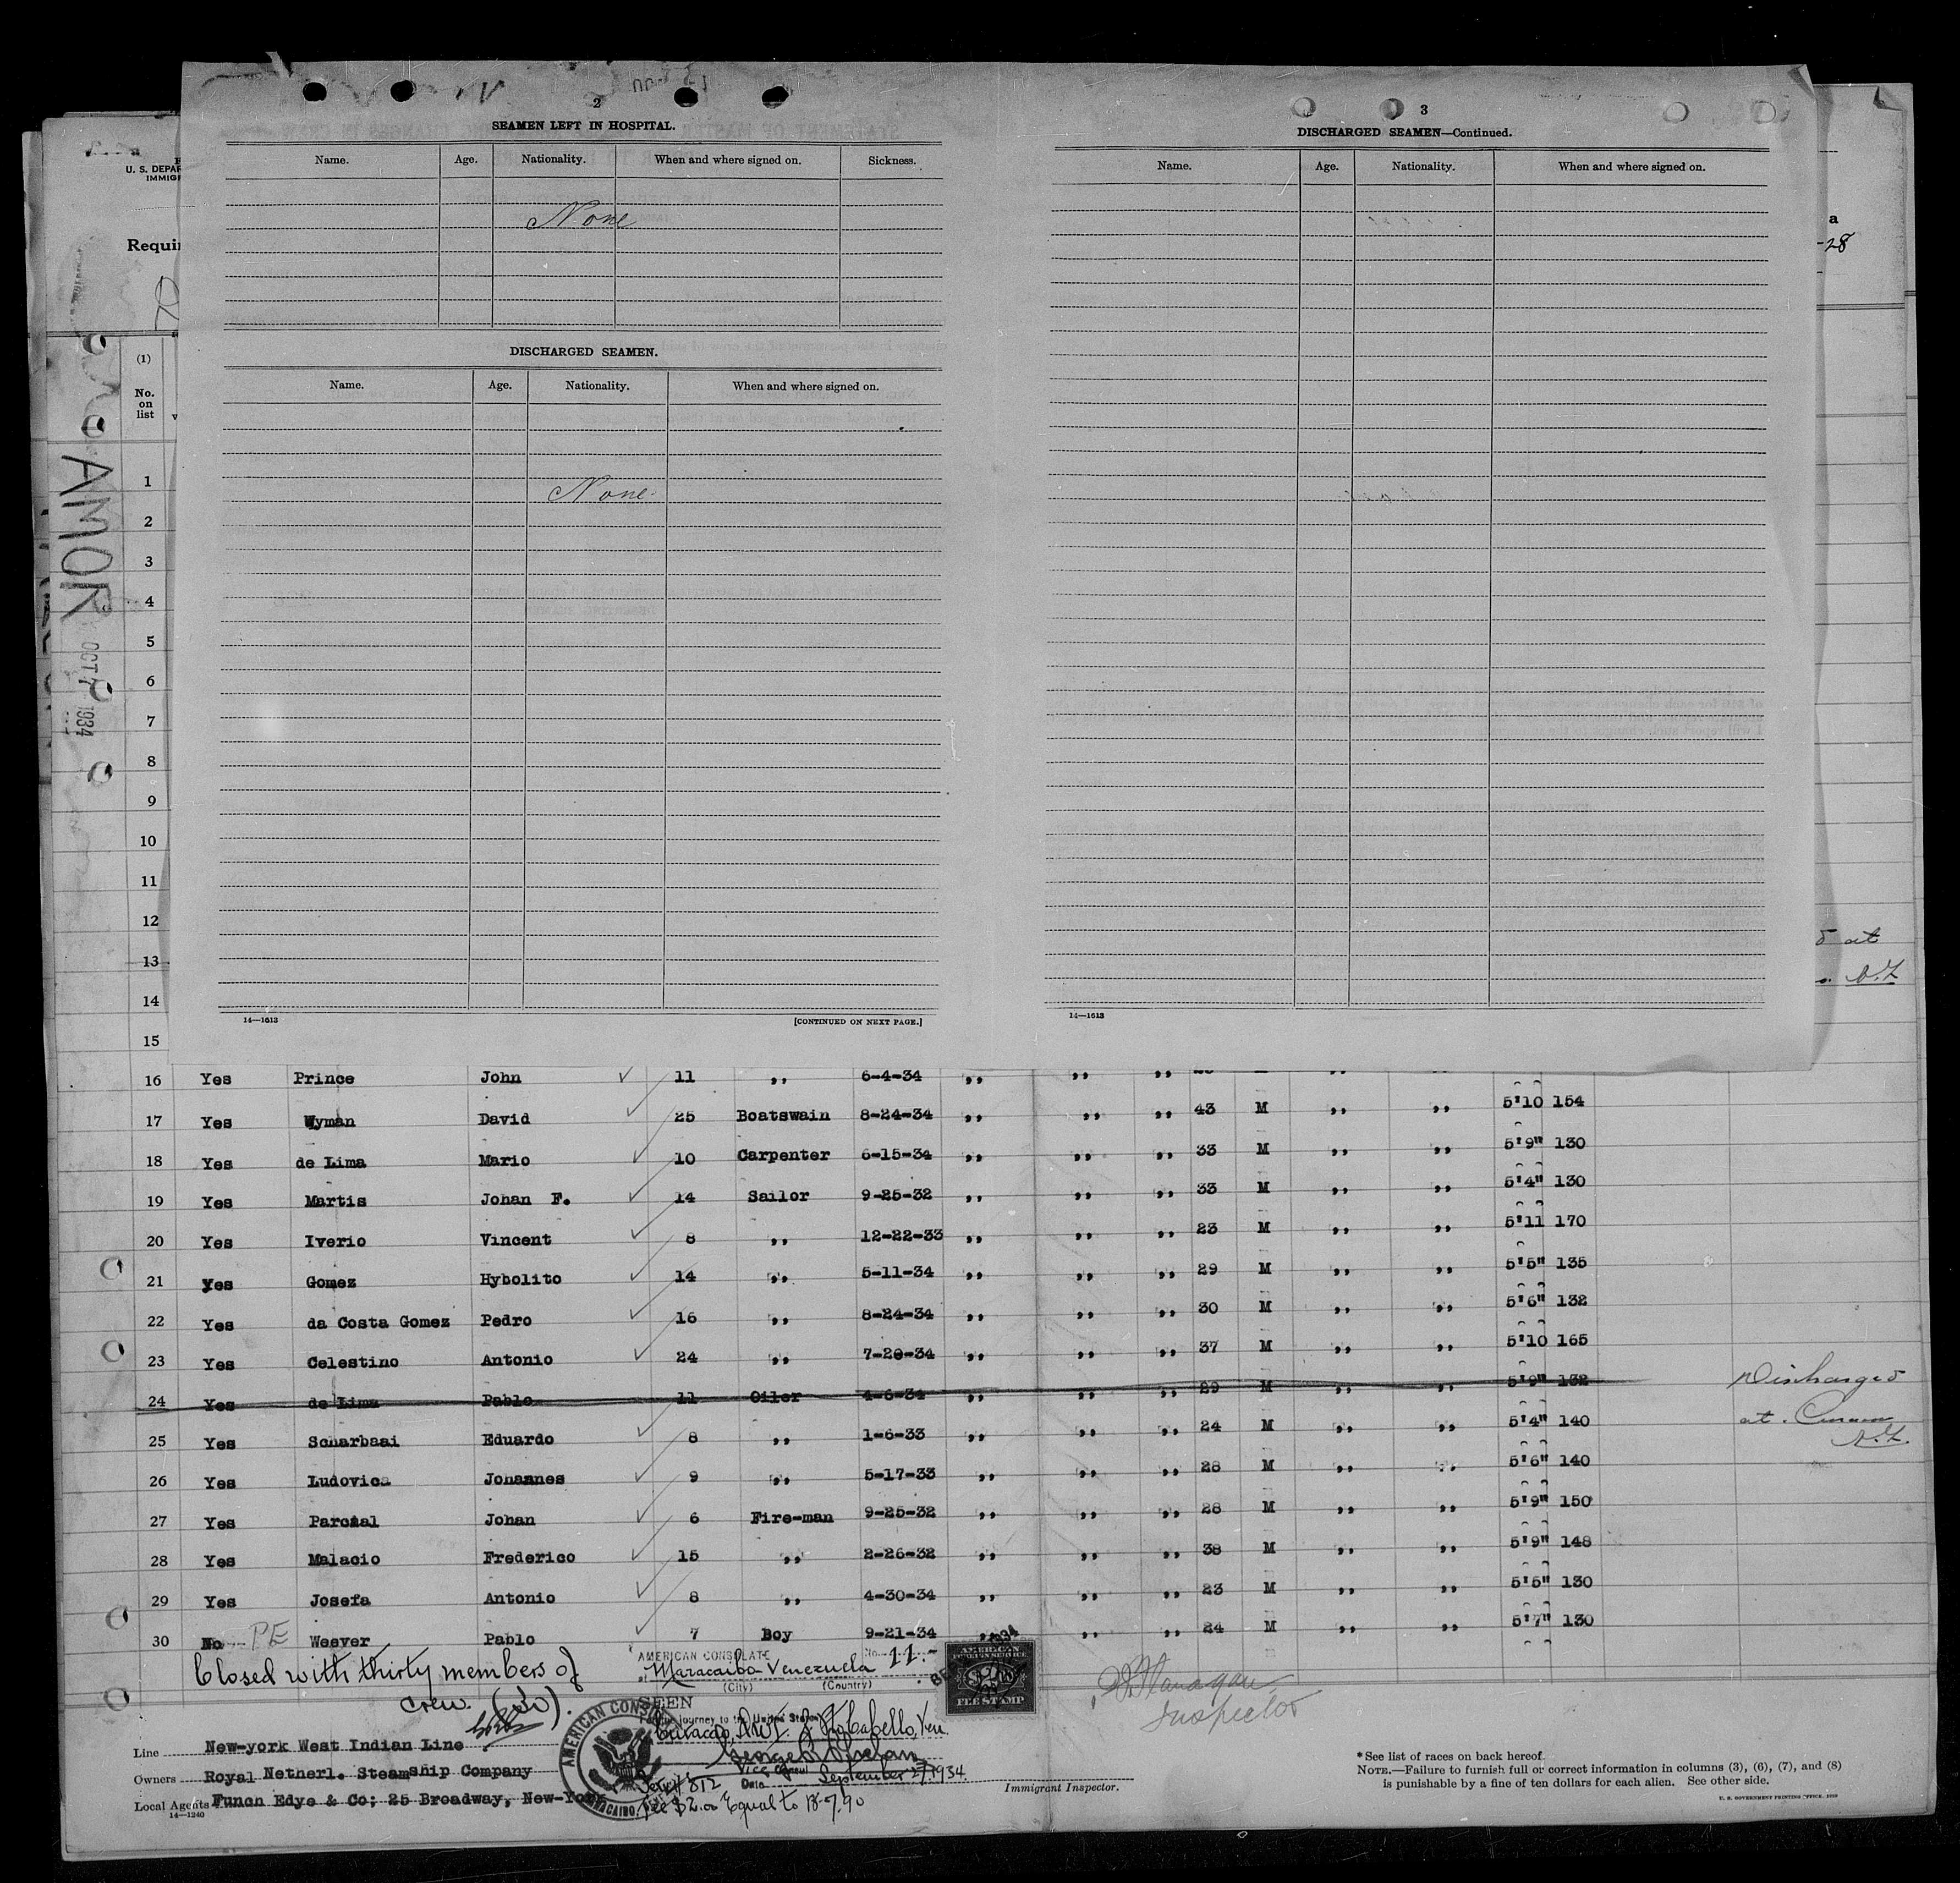 2
SEAMEN LEFT IN HOSPITAL.
Name. Age. Nationality. When and where signed on. Sickness.
None
DISCHARGED SEAMEN.
Name. Age. Nationality. When and where signed on.
None
14—1613 [CONTINUED ON NEXT PAGE.]
3
DISCHARGED SEAMEN—Continued.
Name. Age. Nationality. When and where signed on.
14—1613
U. S. DEPAR
IMMIG
Requi
a
-28
(1)
No.
on
list
AMOR
OCT 7 1934
1
2
3
4
5
6
7
8
9
10
11
12
13
14
15
at
16 Yes Prince John 11 ,, 6-4-34 ,, ,, ,,
17 Yes Wyman David 25 Boatswain 8-24-34 ,, ,, ,, 43 M ,, ,, 5'10 154
18 Yes de Lima Mario 10 Carpenter 6-15-34 ,, ,, ,, 33 M ,, ,, 5'9" 130
19 Yes Martis Johan F. 14 Sailor 9-25-32 ,, ,, ,, 33 M ,, ,, 5'4" 130
20 Yes Iverio Vincent 8 ,, 12-22-33 ,, ,, ,, 23 M ,, ,, 5'11 170
21 Yes Gomez Hybolito 14 ,, 5-11-34 ,, ,, ,, 29 M ,, ,, 5'5" 135
22 Yes da Costa Gomez Pedro 16 ,, 8-24-34 ,, ,, ,, 30 M ,, ,, 5'6" 132
23 Yes Celestino Antonio 24 ,, 7-20-34 ,, ,, ,, 37 M ,, ,, 5'10 165
24 Yes de Lima Pablo 11 Oiler 4-6-34 ,, ,, ,, 29 M ,, ,, 5'9" 132 Discharged
25 Yes Scharbaai Eduardo 8 ,, 1-6-33 ,, ,, ,, 24 M ,, ,, 5'4" 140 at
26 Yes Ludovica Johannes 9 ,, 5-17-33 ,, ,, ,, 28 M ,, ,, 5'6" 140
27 Yes Parcial Johan 6 Fire-man 9-25-32 ,, ,, ,, 28 M ,, ,, 5'9" 150
28 Yes Malacio Frederico 15 ,, 2-26-32 ,, ,, ,, 38 M ,, ,, 5'9" 148
29 Yes Josefa Antonio 8 ,, 4-30-34 ,, ,, ,, 23 M ,, ,, 5'5" 130
30 No PE Weever Pablo 7 Boy 9-21-34 ,, ,, ,, 24 M ,, ,, 5'7" 130
Closed with thirty members of
crew. (30).
AMERICAN CONSULATE No. 11.-
at Maracaibo Venezuela
(City) (Country)
SEEN
For the journey to the United States
Curacao, N.W.I. & Pto Cabello, Ven.
Vice Consul
Date September 27, 1934
Serv # 812
Fee $2.00 Equal to Bs 7.90
AMERICAN FOREIGN SERVICE
FEE STAMP
AMERICAN CONSUL
MARACAIBO
Inspector
Immigrant Inspector.
Line New-york West Indian Line
Owners Royal Netherl. Steamship Company
Local Agents Funch Edye & Co; 25 Broadway, New-York
14—1240
* See list of races on back hereof.
NOTE.—Failure to furnish full or correct information in columns (3), (6), (7), and (8)
is punishable by a fine of ten dollars for each alien. See other side.
U. S. GOVERNMENT PRINTING OFFICE